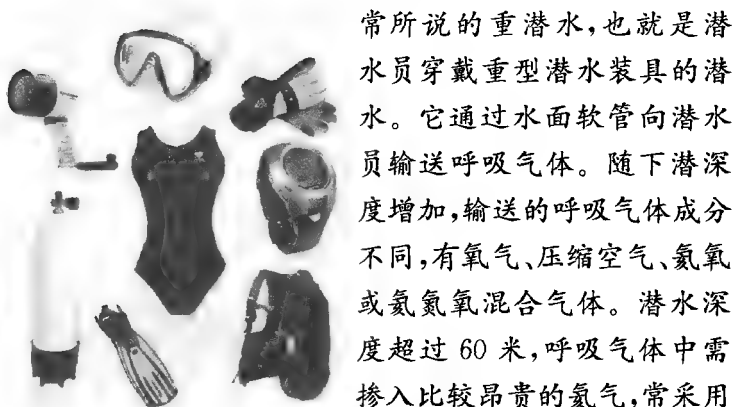 常所说的重潜水,也就是潜
水员穿戴重型潜水装具的潜
水。它通过水面软管向潜水
员输送呼吸气体。随下潜深
度增加,输送的呼吸气体成分
不同,有氧气、压缩空气、氦氧
或氦氮氧混合气体。潜水深
度超过 60 米,呼吸气体中需
掺入比较昂贵的氦气,常采用